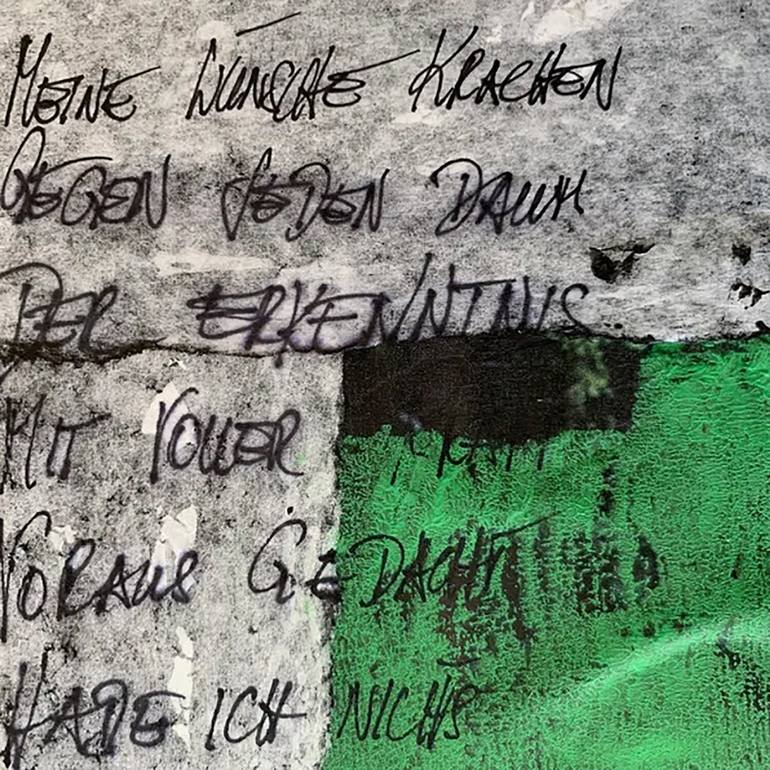 MEINE WÜNSCHE KRACHEN
GEGEN JEDEN DAUM
DER ERKENNTNIS
MIT VOLLER KRAFT
VORAUS GEDACHT
HABE ICH NICHS